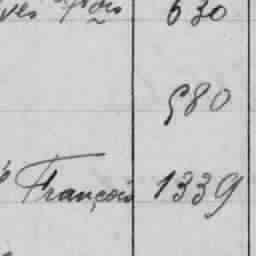 630
580
François 1339